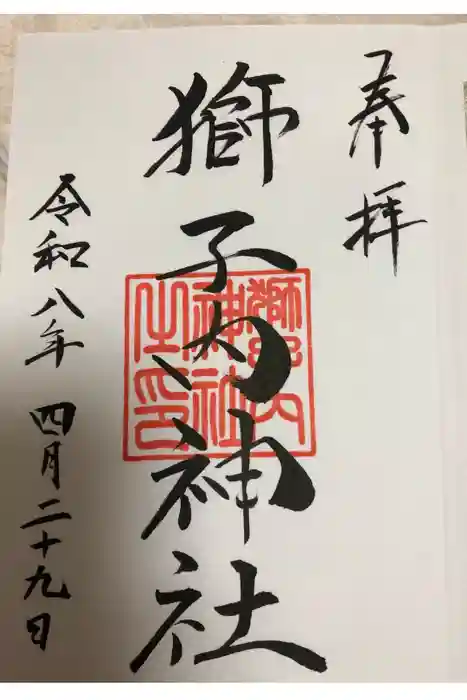 奉拝
獅子内神社
獅子内
神社
之印
令和八年 四月二十九日